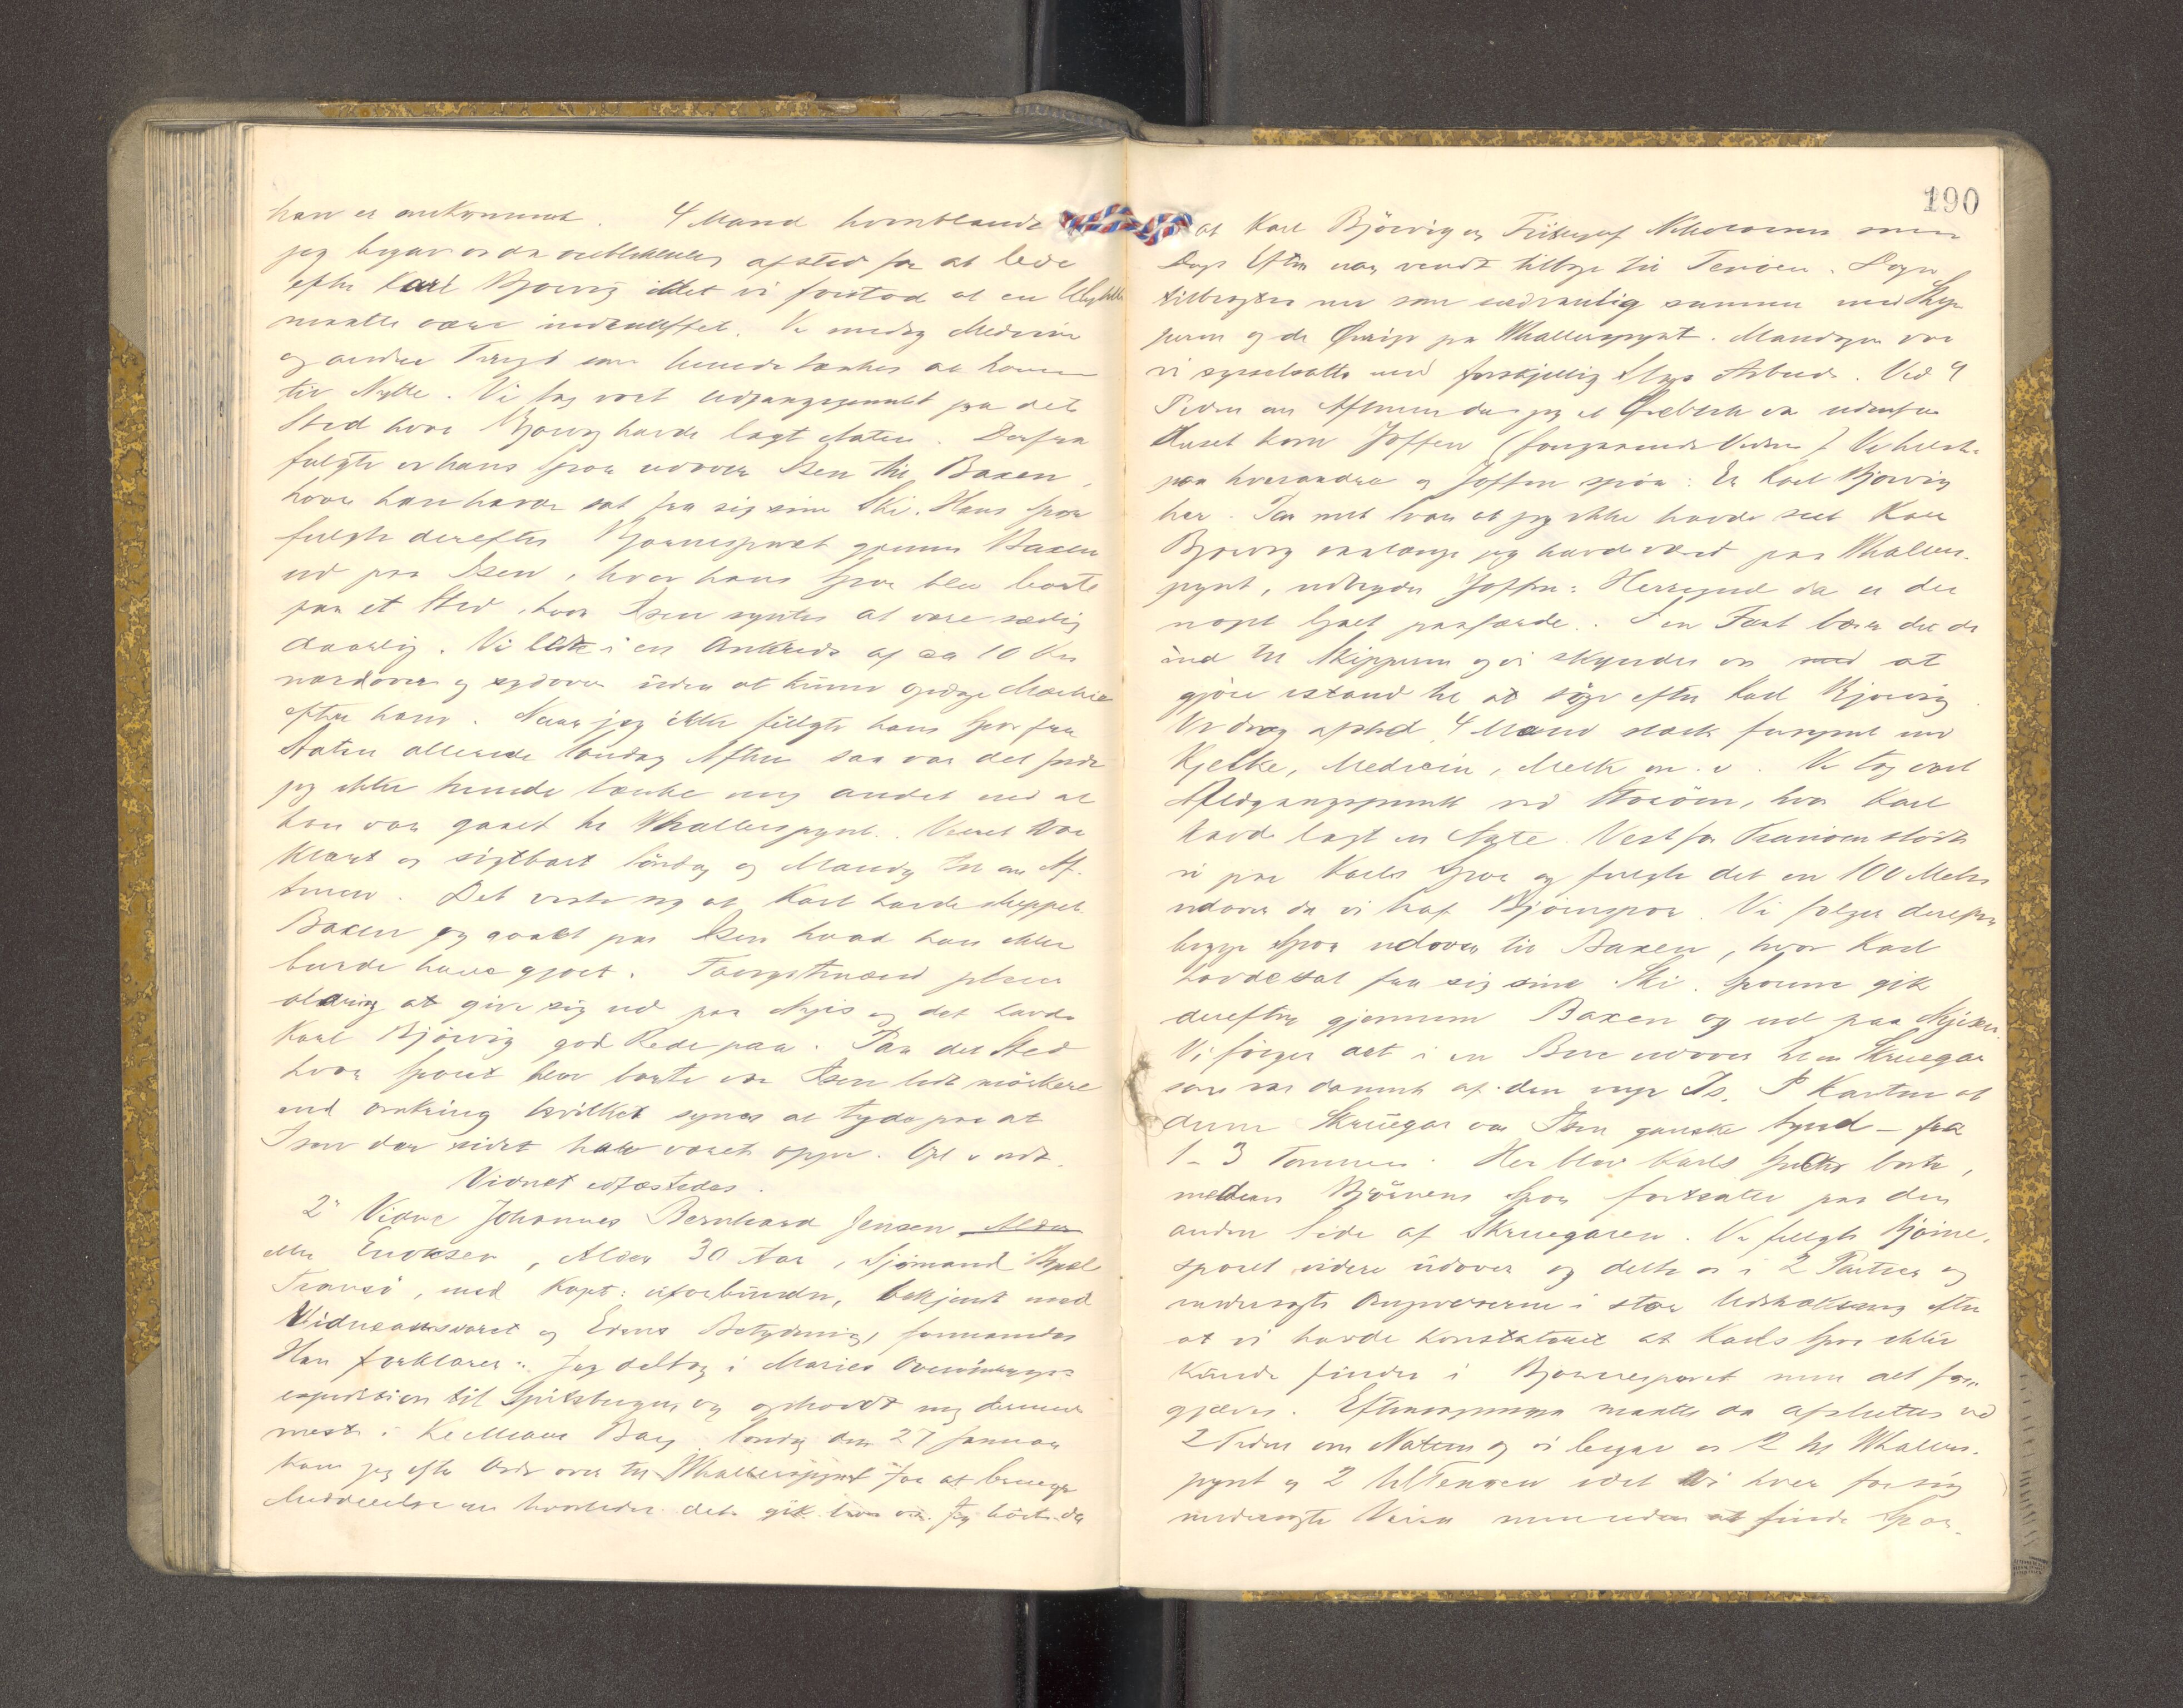 han er ankommet. 4 Mand hvoriblandt
jeg begav os da øieblikkelig afsted for at lede
efter Karl Bjørvig idet vi forstod at en Ulykke
maatte være indtruffet. Vi medtog Medicin
og andre Ting som kunde tænkes at komme
til Nytte. Vi tog vort Udgangspunkt fra det
Sted hvor Bjørvig havde lagt Aaten. Derfra
fulgte vi hans Spor udover Isen til Baxen,
hvor han havde sat fra sig sine Ski. Hans Spor
fulgte derefter Bjørnesporet gjennem Baxen
ud paa Isen, hvor hans Spor blev borte
paa et Sted, hvor Isen syntes at være særlig
daarlig. Vi ledte i en Omkreds af ca 10 Km
nordover og sydover uden at kunne opdage Mærke
efter ham. Naar jeg ikke fulgte hans Spor fra
Aaten allerede Søndag Aften saa var det fordi
jeg ikke kunde tænke mig andet end at
han var gaaet til Whalerspynt. Veiret var
klart og sigtbart Søndag og Mandag til om Af-
tenen. Det viste sig at Karl havde sluppet
Baxen og gaaet paa Isen hvad han ikke
burde have gjort. Fangstmænd pleier
aldrig at give sig ud paa Nyis og det havde
Karl Bjørvig god Rede paa. Paa det Sted
hvor Sporet blev borte var Isen lidt mörkere
end omkring hvilket synes at tyde paa at
Isen der sidst har været oppe. Opl. v. vedt.
Vidnet edfæstedes.
2' Vidne Johannes Bernhard Jensen Alder
eller Enoksen, Alder 30 Aar, Sjømand Bopæl
Tromsö, med Kapt: uforbunden, bekjent med
Vidneansvaret og Edens Betydning, formanedes
Han forklarer: Jeg deltog i Maries Overvintrings
expedition til Spitsbergen og opholdt mig derunder
mest i Keilhau Bay. Søndag den 27 Januar
kom jeg efter Ordre over til Whalerspynt for at bringe
Meddelelse om hvorledes det gik hos os. Jeg hörte da
190
at Karl Björvig og Fritjof Nikolaisen samme
Dags Aften var vendt tilbage til Tenöen. Dagen
tilbragtes nu som sædvanlig sammen med Skip-
peren og de Øvrige paa Whalerspynt. Mandagen var
vi sysselsatte med forskjellig Slags Arbeide. Ved 9
Tiden om Aftenen da jeg et Øieblik var udenfor
Huset kom Joffen (foregaaende Vidne) Vi hilste
paa hverandre og Joffen spör: Er Karl Bjørvig
her. Paa mit Svar at jeg ikke havde seet Karl
Bjørvig saalænge jeg havde været paa Whalers-
pynt, udbryder Joffen: Herregud da er der
noget galt paafærde. I en Fart bærer det da
ind til Skipperen og vi skynder os med at
gjöre istand til at söge efter Karl Bjørvig.
Vi drog afsted 4 Mand stærk forsynet med
Kjelke, Medicin, Melk m. v. Vi tog vort
Udgangspunkt ved Storöen, hvor Karl
havde lagt en Aate. Vest for Tenöen stödte
vi paa Karls Spor og fulgte det en 100 Meter
udover da vi traf Bjørnspor. Vi fulgte derefter
begge Spor udover til Baxen, hvor Karl
havde sat fra sig sine Ski. Sporene gik
derefter gjennem Baxen og ud paa Nyisen.
Vi fölger det i en Bue udover til en Skruegar
som var dannet af den nye Is. P Kanten af
denne Skruegar var Isen ganske tynd – fra
1-3 Tommer. Her blev Karls Spor borte,
medens Bjørnens Spor fortsatte paa den
anden Side af Skruegaren. Vi fulgte Bjørne-
sporet videre udover og delte os i 2 Partier og
undersøgte Omgivelserne i stor Udstrækning efter
at vi havde konstateret at Karls Spor ikke
kunde findes i Bjørnesporet men alt for-
gjæves. Eftersøgningen maatte da afsluttes ved
2 Tiden om Natten og vi begav os 2 til Whalers-
pynt og 2 til Tenöen idet vi hver for sig
undersøgte Veien men uden at finde Spor.